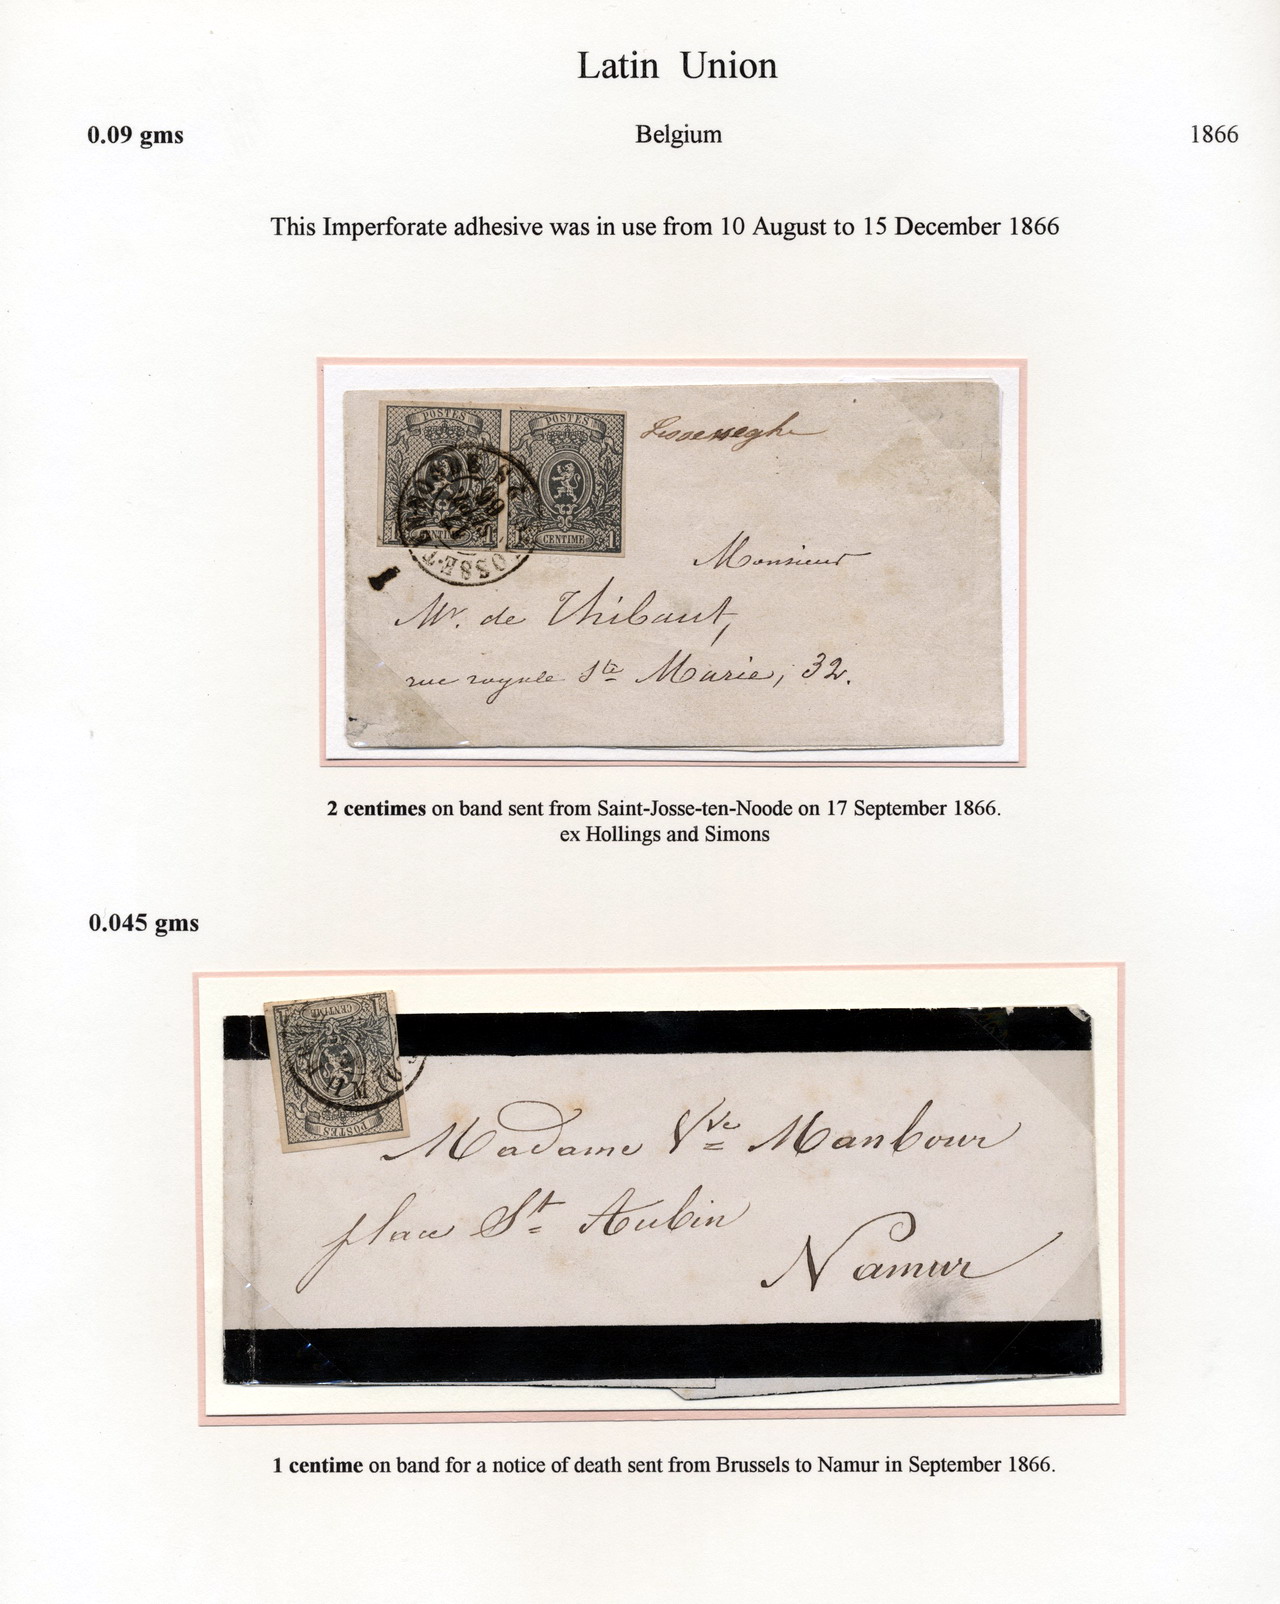 Latin Union
0.09 gms Belgium 1866
This Imperforate adhesive was in use from 10 August to 15 December 1866
POSTES POSTES
1 CENTIME 1 1 CENTIME 1
Monsieur
Mr. de Thibaut,
rue royale Ste Marie, 32.
2 centimes on band sent from Saint-Josse-ten-Noode on 17 September 1866.
ex Hollings and Simons
0.045 gms
1 CENTIME 1
POSTES
Madame Vve Manbour
place St Aubin
Namur
1 centime on band for a notice of death sent from Brussels to Namur in September 1866.